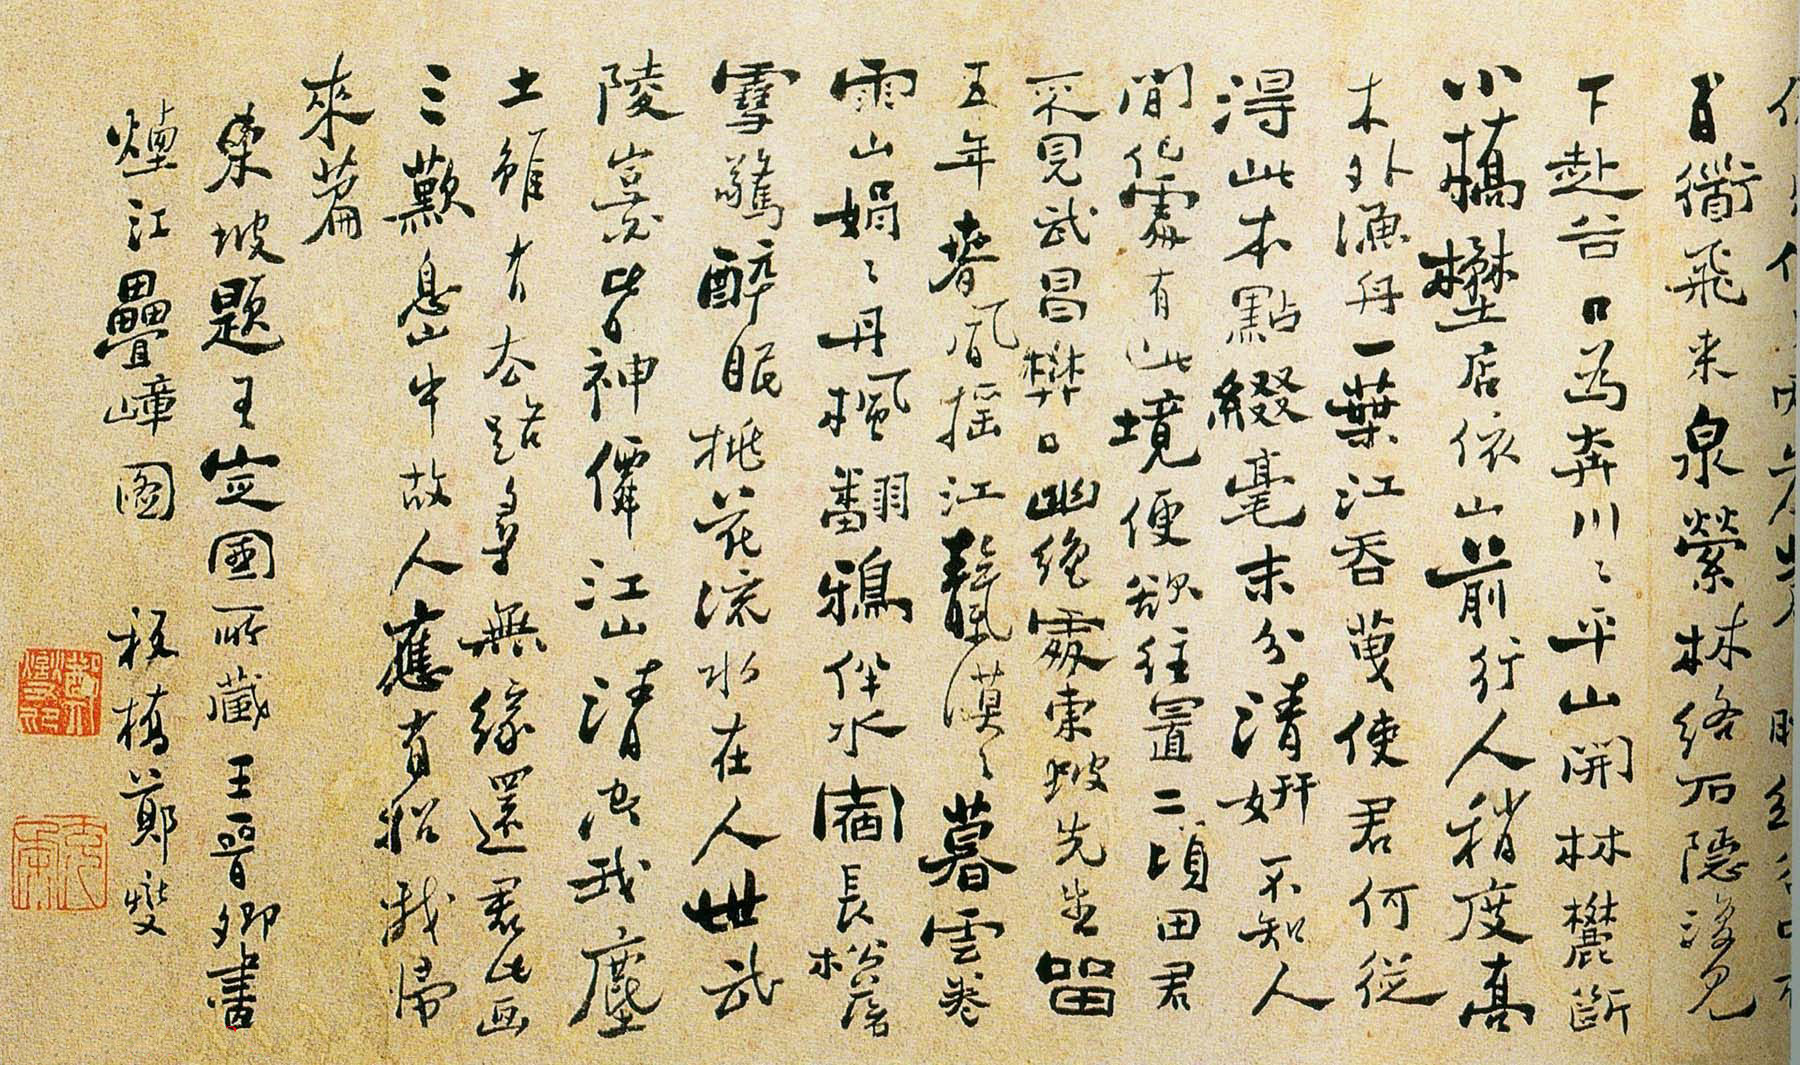 百衟飛來泉縈林絡石隱復見
下赴谷口為奔川〻平山開林麓斷
小橋壄店依山前行人稍度喬
木外漁舟一葉江吞使君何從
得此本點綴毫末分清妍不知人
間何處有此境便欲往置二頃田君
不見武昌樊口幽絕處東坡先生留
五年春風搖江靝漠〻暮雲卷
雨山娟〻丹楓翻鴉伴水宿長松落
雪驚醉眠桃花流水在人世武
陵豈皆神僊江山清空我塵
土雖有去路尋無緣還君此画
三歎息山中故人應有招我歸
來篇
東坡題王定國所藏王晉卿畫
煙江疊嶂圖 板橋鄭燮